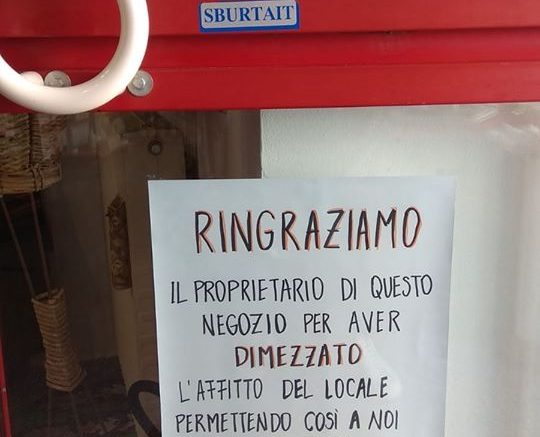 SBURTAIT
RINGRAZIAMO
IL PROPRIETARIO DI QUESTO
NEGOZIO PER AVER
DIMEZZATO
L'AFFITTO DEL LOCALE
PERMETTENDO COSÌ A NOI